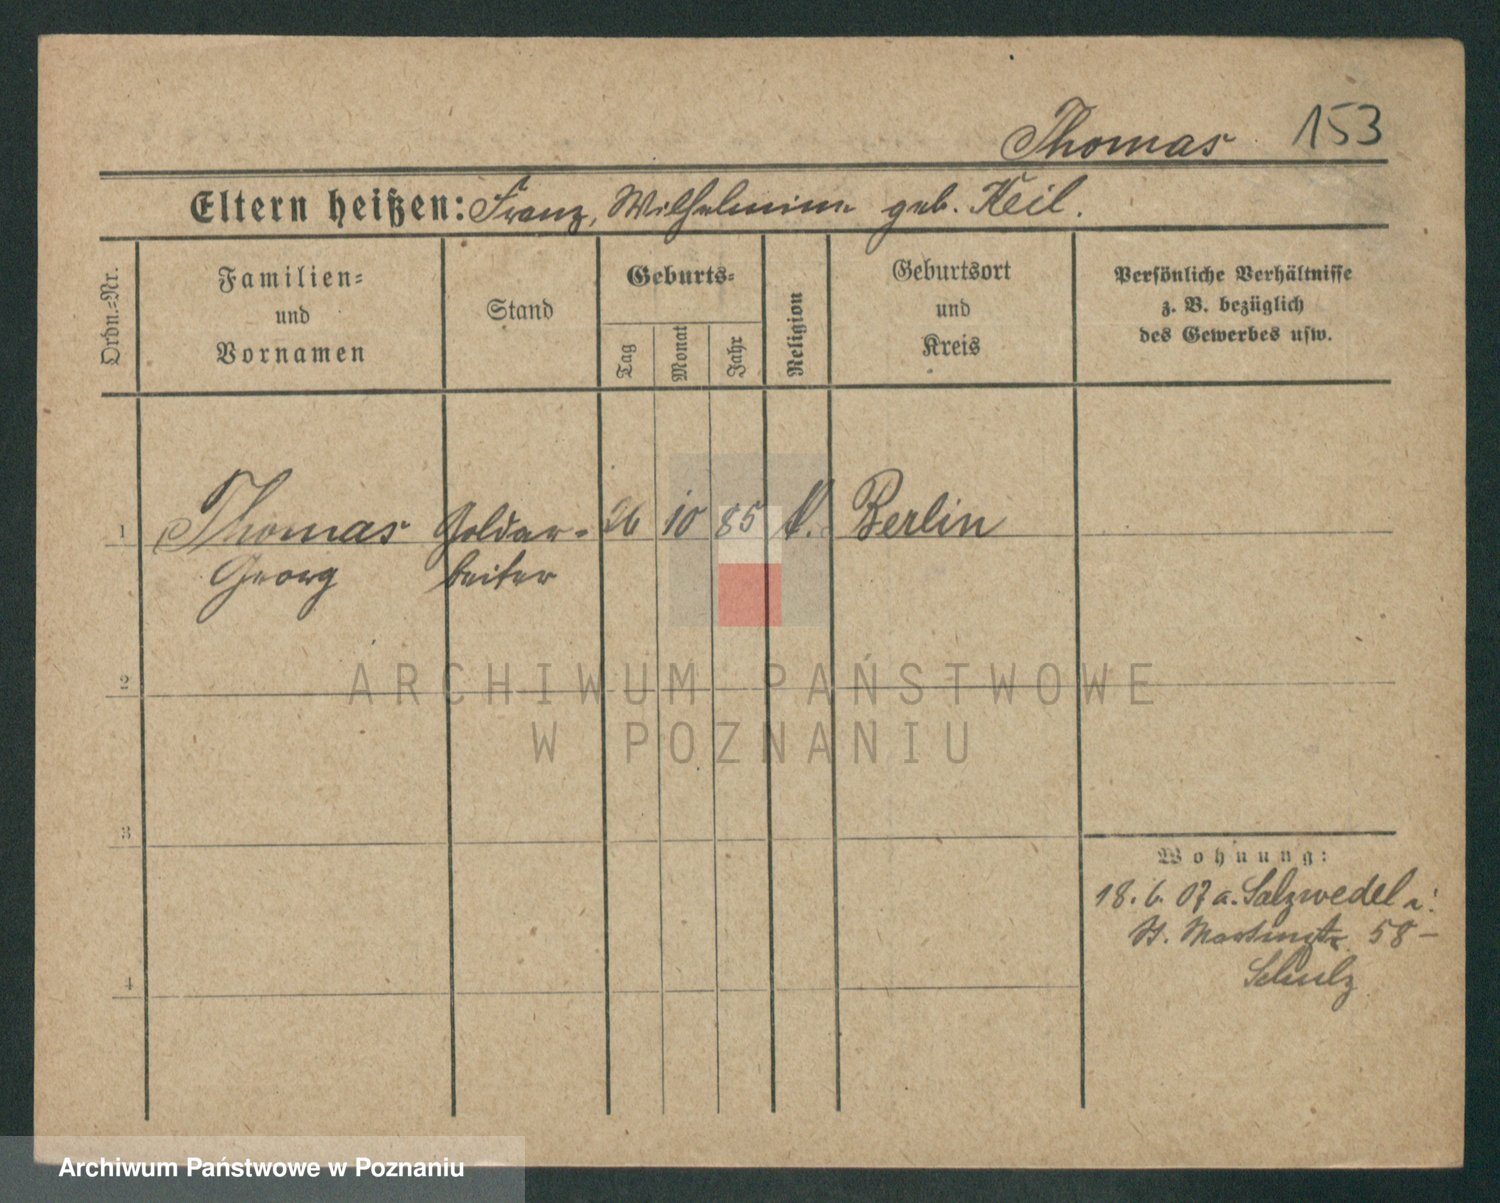 Thomas 153
Eltern heißen: Franz, Wilhelmine geb. Keil.
Ordn.-Nr.
Familien- und Vornamen
Stand
Geburts-
Tag
Monat
Jahr
Religion
Geburtsort und Kreis
Persönliche Verhältnisse
z. B. bezüglich
des Gewerbes usw.
1 Thomas Goldar- 26 10 85 Berlin
Georg beiter
2
3
4
Wohnung:
18. 6. 07 a. Salzwedel
St. Martinstr. 58 –
Schulz
ARCHIWUM PAŃSTWOWE
W POZNANIU
Archiwum Państwowe w Poznaniu